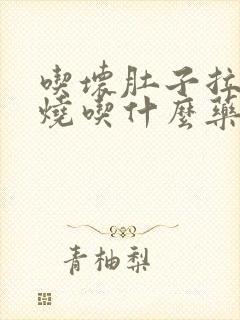 喫壞肚子拉
燒喫什麼藥
青柚梨